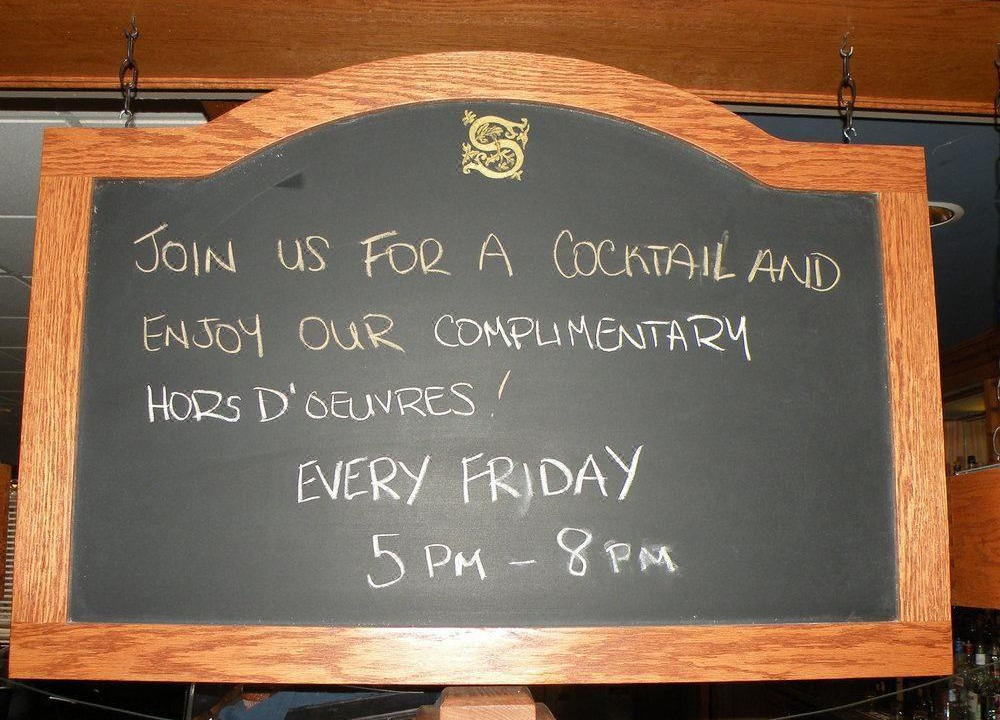 S
JOIN US FOR A COCKTAIL AND
ENJOY OUR COMPLIMENTARY
HORS D'OEUVRES!
EVERY FRIDAY
5 PM - 8 PM